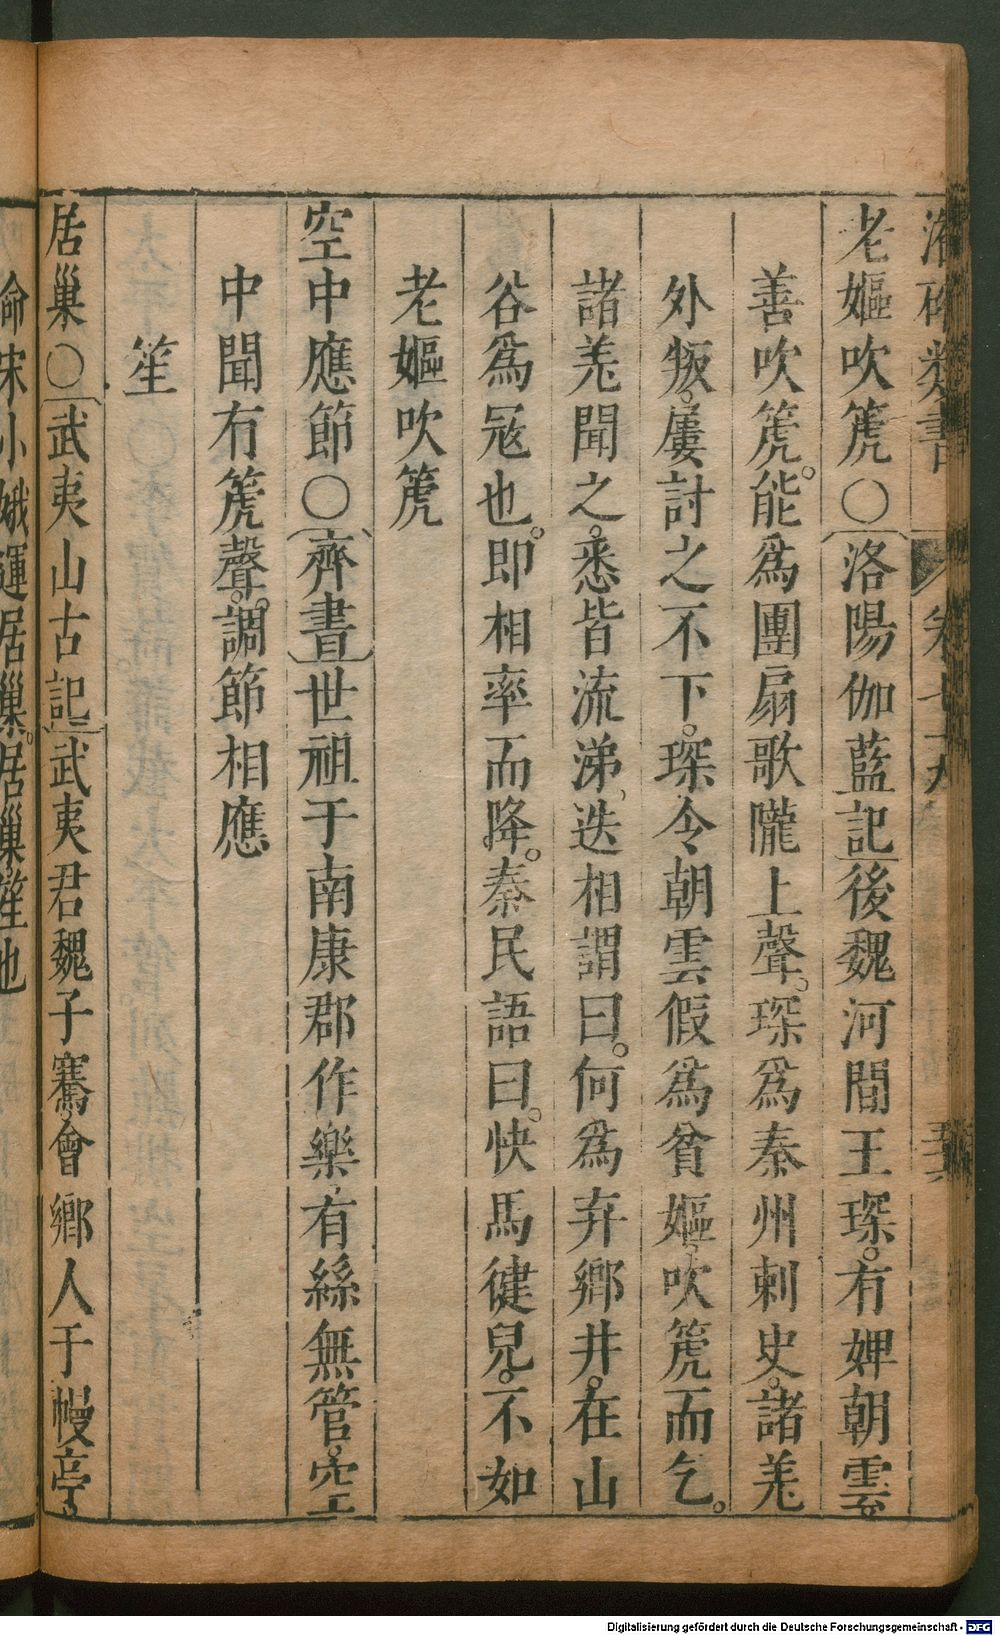 老嫗吹篪○洛陽伽藍記後魏河間王琛有婢朝雲
善吹篪能爲團扇歌隴上聲琛爲秦州刺史諸羌
外叛屢討之不下琛令朝雲假爲貧嫗吹篪而乞
諸羌聞之悉皆流涕迭相謂曰何爲弃鄉井在山
谷爲冦也即相率而降秦民語曰快馬健兒不如
老嫗吹篪
空中應節○齊書世祖于南康郡作樂有絲無管空
中聞有篪聲調節相應
笙
居巢○武夷山古記武夷君魏子騫會鄉人于幔亭
宋小娥運居巢居巢笙也
Digitalisierung gefördert durch die Deutsche Forschungsgemeinschaft - DFG